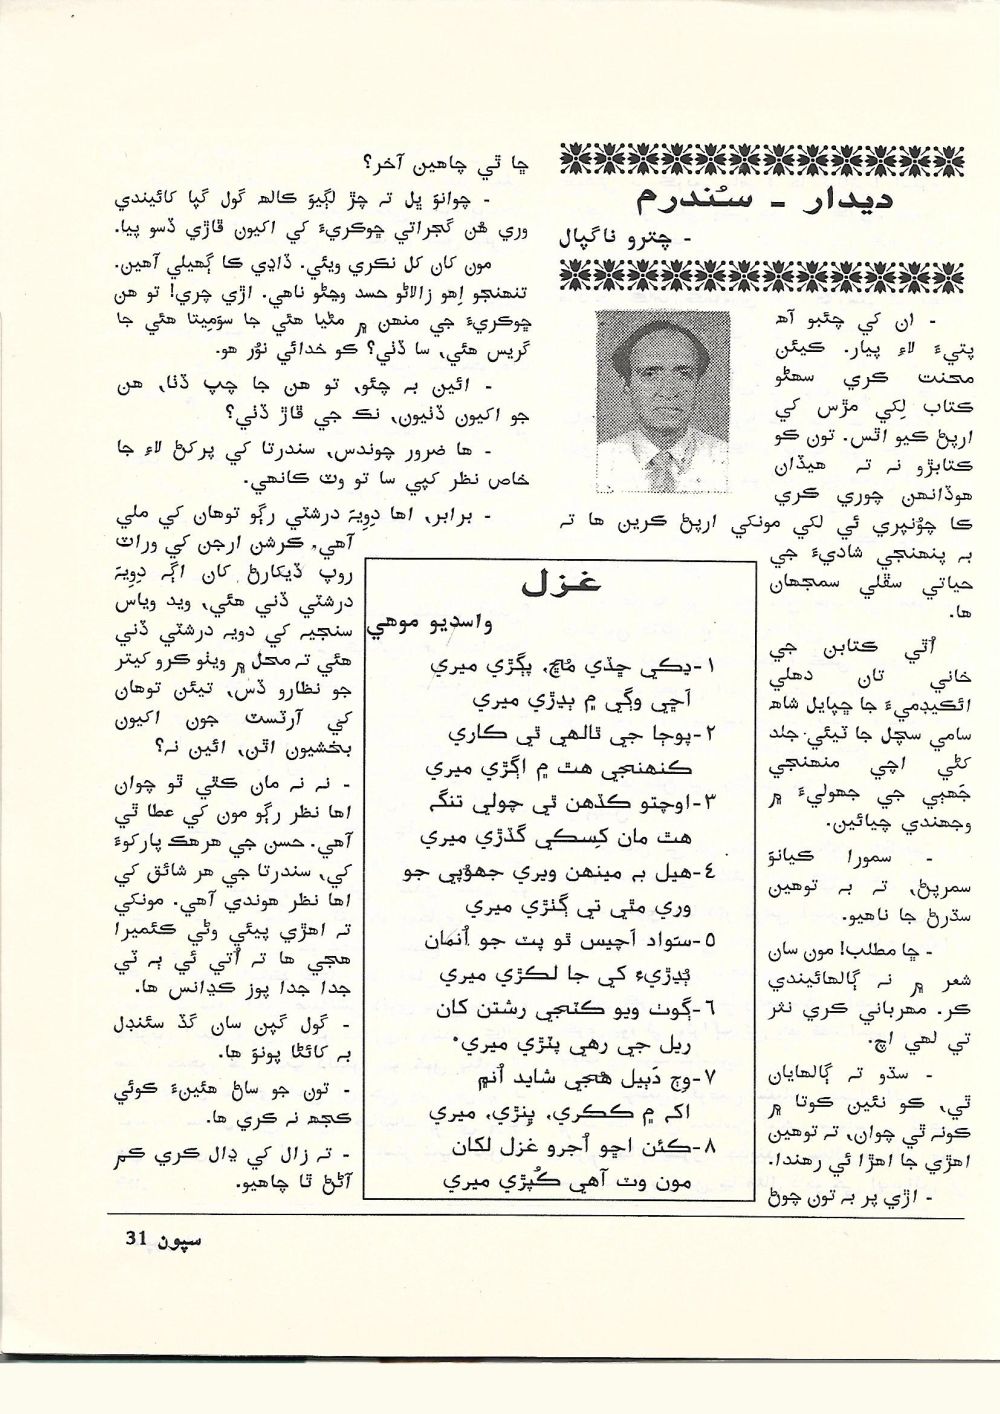 ديدار ـ سُندرم
- چترو ناگپال
- ان کي چئبو آهہ
پتيءَ لاءِ پيار. ڪيئن
محنت ڪري سهڻو
ڪتاب لِکي مڙس کي
ارپڻ ڪيو اٿس. تون ڪو
ڪتابڙو نہ تہ هيڏان
هوڏانهن چوري ڪري
ڪا چؤنپري ئي لکي مونکي ارپڻ ڪرين ها تہ
بہ پنهنجي شاديءَ جي
حياتي سڦلي سمجهان
ها.
اُتي ڪتابن جي
خاني تان دهلي
اڪيڊميءَ جا ڇپايل شاهہ
سامي سچل جا ٽيئي جلد
کڻي اچي منهنجي
جَهٻي جي جهوليءَ ۾
وجهندي چيائين.
- سمورا ڪيانوَ
سمرپڻ، تہ بہ توهين
سڌرڻ جا ناهيو.
- ڇا مطلب! مون سان
شعر ۾ نہ ڳالهائيندي
ڪر. مهرباني ڪري نثر
تي لهي اچ.
- سڌو تہ ڳالهايان
ٿي، ڪو نئين ڪوتا ۾
ڪونہ ٿي چوان، تہ توهين
اهڙي جا اهڙا ئي رهندا.
- اڙي پر بہ تون چوڻ
ڇا ٿي چاهين آخر؟
- چوانوَ ڀل تہ چڙ لڳيوَ ڪالهہ گول گپا کائيندي
وري هُن گجراتي ڇوڪريءَ کي اکيون ڦاڙي ڏسو پيا.
مون کان کل نڪري ويئي. ڏاڍي ڪا ڳهيلي آهين.
تنهنجو اِهو زالاڻو حسد وڃڻو ناهي. اڙي چري! تو هن
ڇوڪريءَ جي منهن ۾ مڻيا هئي جا سوَميتا هئي جا
گريس هئي، سا ڏٺي؟ ڪو خدائي نؤر هو.
- ائين بہ چئو، تو هن جا چپ ڏٺا، هن
جو اکيون ڏٺيون، نڪ جي ڦاڙ ڏٺي؟
- ها ضرور چوندس، سندرتا کي پرکڻ لاءِ جا
خاص نظر کپي سا تو وٽ ڪانهي.
- برابر، اها دِوِيہَ درشٽي رڳو توهان کي ملي
آهي. ڪرشن ارجن کي وراٽ
روپ ڏيکارڻ کان اڳہ دِوِيہَ
درشٽي ڏني هئي، ويد وياس
سنجيہ کي دويہ درشٽي ڏني
هئي تہ محل ۾ ويٺو ڪرو کيتر
جو نظارو ڏس، تيئن توهان
کي آرٽسٽ جون اکيون
بخشيون اٿن، ائين نہ؟
- نہ نہ مان ڪٿي ٿو چوان
اها نظر رڳو مون کي عطا ٿي
آهي. حسن جي هرهڪ پارکوءَ
کي، سندرتا جي هر شائق کي
اها نظر هوندي آهي. مونکي
تہ اهڙي پيئي وڻي ڪئميرا
هجي ها تہ اُتي ئي ٻہ ٽي
جدا جدا پوز ڪڍانس ها.
- گول گپن سان گڏ سئنڊل
بہ کائڻا پونوَ ها.
- تون جو ساڻ هئينءَ ڪوئي
ڪجهہ نہ ڪري ها.
- تہ زال کي ڍال ڪري ڪم
آڻڻ ٿا چاهيو.
غزل
واسديو موهي
١-ڍڪي ڇڏي مُنهن، پڳڙي ميري
اَچي وڳي ۾ ٻڍڙي ميري
٢-پوڄا جي ٿالهي ٿي ڪاري
ڪنهنجي هٿ ۾ اڳڙي ميري
٣-اوچتو ڪڏهن ٿي چولي تنگہ
هٿ مان کِسڪي گڏڙي ميري
٤-هيل بہ مينهن ويري جهؤپي جو
وري مٿي تي ڳنڙي ميري
٥-ستواد اَچيس ٿو پٽ جو اُنمان
ٻُڍڙيءَ کي جا لڪڙي ميري
٦-ڳوٺ ويو ڪٽجي رشتن کان
ريل جي رهي پٽڙي ميري
٧-وڄ دَٻيل هُجي شايد اُنهہ
اکہ ۾ ڪڪري، پنڙي، ميري
٨-ڪئن اڇو اُجرو غزل لکان
مون وٽ آهي کُپڙي ميري
سپون 31